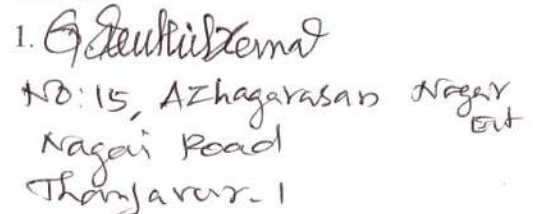 1. G.
No: 15, Azhagarasan Nagar
Ext
Nagai Road
Thanjavur-1